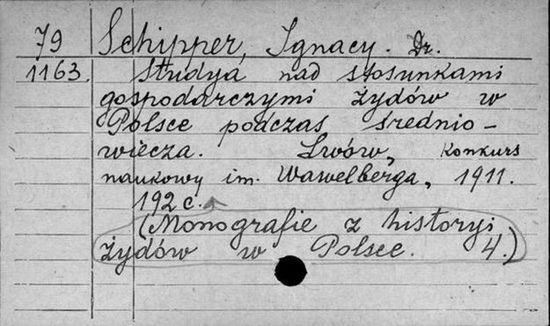 79 Schipper, Ignacy. Dr.
1163. Studya nad stosunkami
gospodarczymi żydów w
Polsce podczas średnio-
wiecza. Lwów, konkurs
naukowy im. Wawelberga, 1911.
192 c.
(Monografie z historyi
żydów w Polsce. 4.)